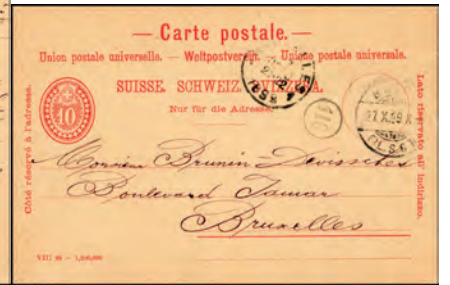 — Carte postale. —
Union postale universelle. — Weltpostverein. — Unione postale universale.
SUISSE. SCHWEIZ. SVIZZERA.
Nur für die Adresse.
10
Côté réservé à l'adresse.
Lato riservato all' indirizzo.
116
1898
27.X.99
Monsieur Brunin-
Boulevard
Bruxelles